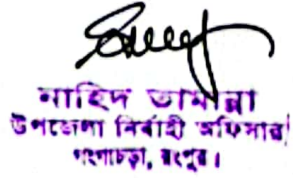 নাহিদ তামান্না
উপজেলা নির্বাহী অফিসার
গংগাচড়া, রংপুর।